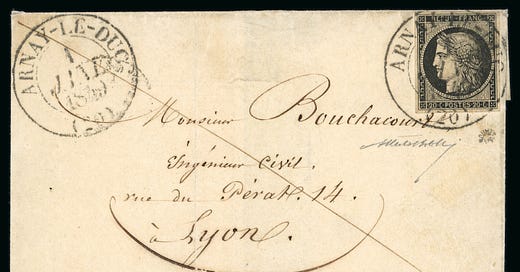 ARNAY-LE-DUC
1
JANV.
1849
(20)
REPUB. FRANC.
20 C POSTES 20 C
ARN
(20)
Monsieur Bouchacourt
Ingénieur Civil.
rue du Pérat. 14.
à Lyon.